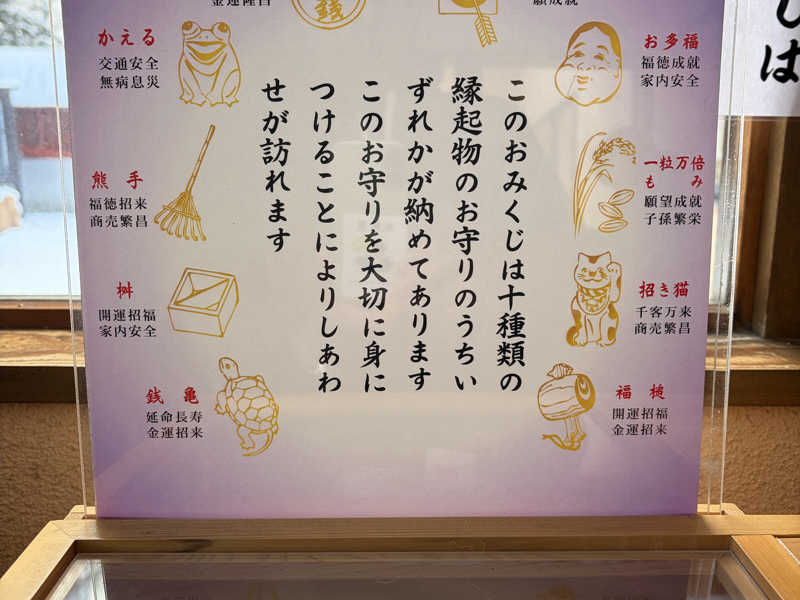 金運隆昌
銭
願成就
かえる
交通安全
無病息災
熊手
福徳招来
商売繁昌
桝
開運招福
家内安全
銭亀
延命長寿
金運招来
このおみくじは十種類の
縁起物のお守りのうちい
ずれかが納めてあります
このお守りを大切に身に
つけることによりしあわ
せが訪れます
お多福
福徳成就
家内安全
一粒万倍
もみ
願望成就
子孫繁栄
招き猫
千客万来
商売繁昌
福槌
開運招福
金運招来
しは